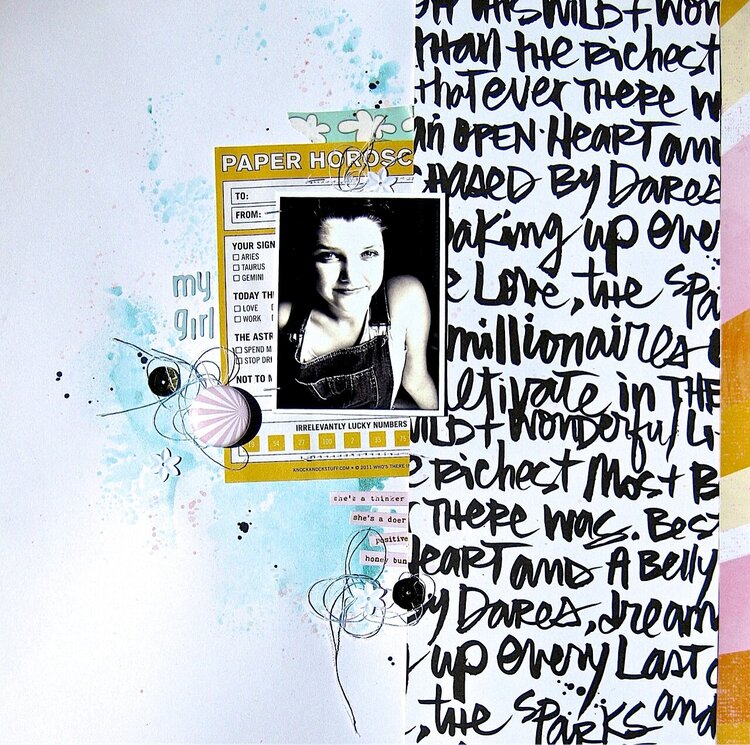 PAPER HOROSC
TO:
FROM:
YOUR SIGN
ARIES
TAURUS
GEMINI
TODAY TH
LOVE
WORK
THE ASTR
SPEND M
STOP DRI
NOT TO M
IRRELEVANTLY LUCKY NUMBERS
54 27 100 7 33 75
KNOCKKNOCKSTUFF.COM • © 2011 WHO'S THERE
my
girl
she's a thinker
she's a doer
positive
honey bun
THIS WILD + WON
THAN THE RICHEST
THAT EVER THERE W
AN OPEN HEART AND
CHASED BY DARES
WAKING UP EVE
LOVE, THE SPA
millionaires
CULTIVATE IN THE
WILD + WONDERFUL LI
RICHEST MOST B
THERE WAS. BEST
HEART AND A BELLY
BY DARES, DREAM
UP EVERY LAST
, THE SPARKS AND